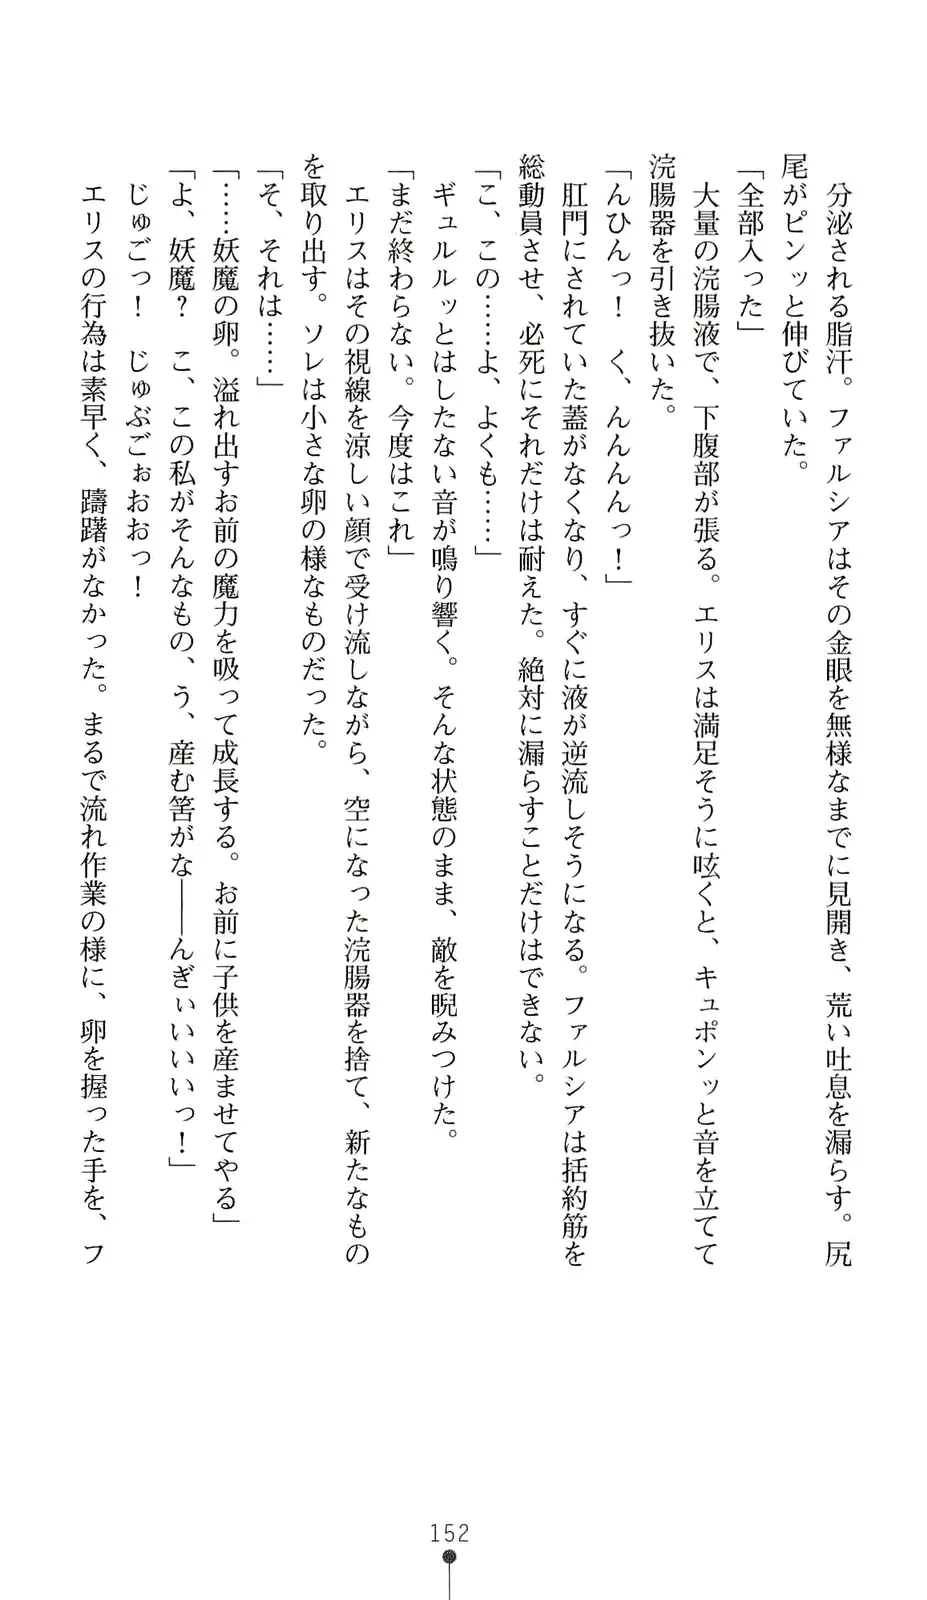 分泌される脂汗。ファルシアはその金眼を無様なまでに見開き、荒い吐息を漏らす。尻
尾がピンッと伸びていた。
「全部入った」
　大量の浣腸液で、下腹部が張る。エリスは満足そうに呟くと、キュポンッと音を立てて
浣腸器を引き抜いた。
「んひんっ！　く、んんんんっ！」
　肛門にされていた蓋がなくなり、すぐに液が逆流しそうになる。ファルシアは括約筋を
総動員させ、必死にそれだけは耐えた。絶対に漏らすことだけはできない。
「こ、この……よ、よくも……」
　ギュルルッとはしたない音が鳴り響く。そんな状態のまま、敵を睨みつけた。
「まだ終わらない。今度はこれ」
　エリスはその視線を涼しい顔で受け流しながら、空になった浣腸器を捨て、新たなもの
を取り出す。ソレは小さな卵の様なものだった。
「そ、それは……」
「……妖魔の卵。溢れ出すお前の魔力を吸って成長する。お前に子供を産ませてやる」
「よ、妖魔？　こ、この私がそんなもの、う、産む筈がな――んぎぃいいいっ！」
　じゅごっ！　じゅぶごぉおおっ！
　エリスの行為は素早く、躊躇がなかった。まるで流れ作業の様に、卵を握った手を、フ
152